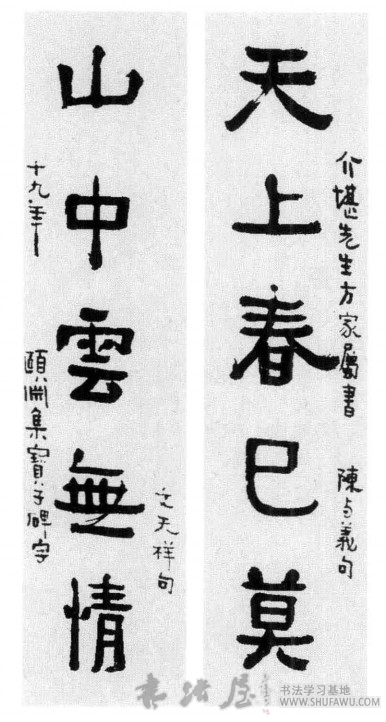 天上春已莫
介堪先生方家属書
陳与義句
山中雲無情
文天祥句
十九年
頤淵集寶子碑字
書法屋
书法学习基地
WWW.SHUFAWU.COM